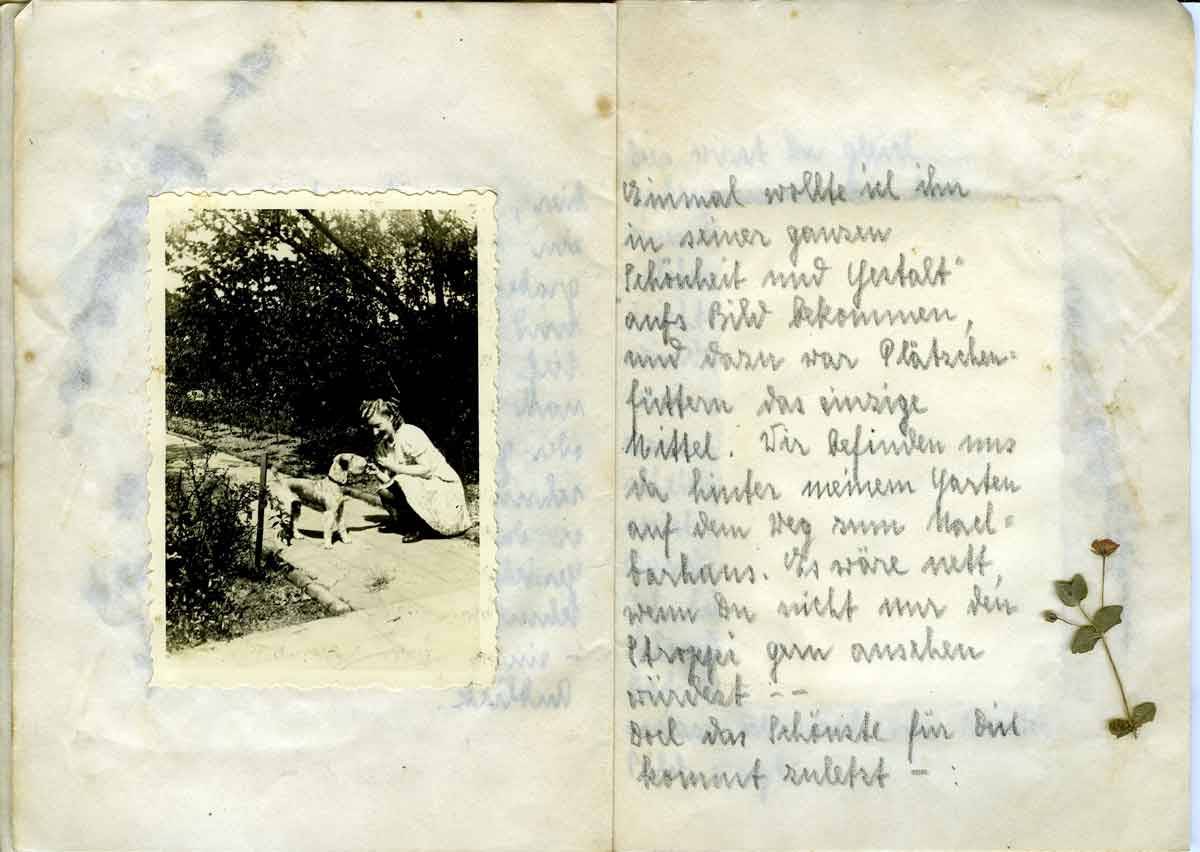 Einmal wollte ich ihn
in seiner ganzen
"Schönheit und Gestalt"
aufs Bild bekommen,
und dazu war Plätzchen=
füttern das einzige
Mittel. Wir befinden uns
da hinter meinem Garten
auf dem Weg zum Nach=
barhaus. Es wäre nett,
wenn Du nicht nur den
Stroppi gern ansehen
würdest --
Doch das Schönste für Dich
kommt zuletzt — :